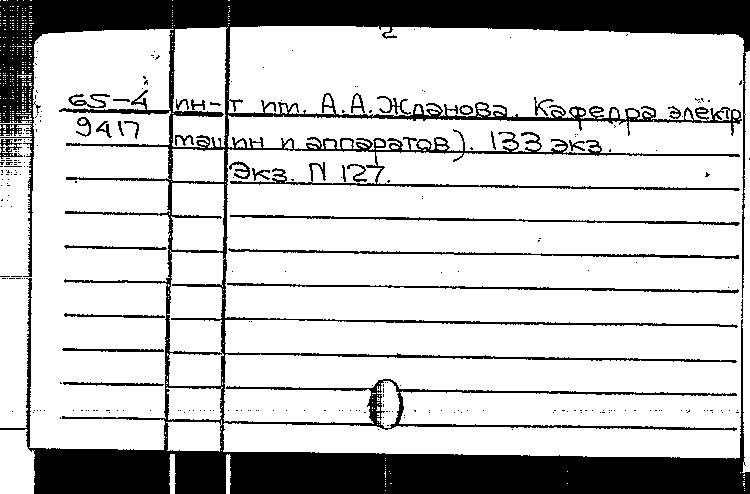 2
65-4 ин-т им. А.А.Жданова. Кафедра электр
9417 машин и аппаратов). 133 экз.
Экз. N 127.